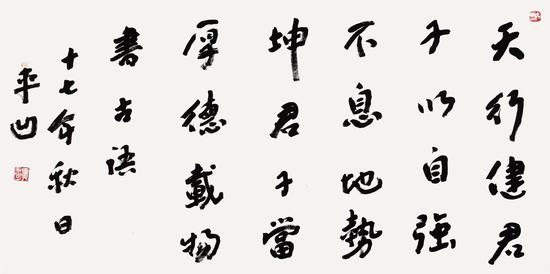 天行健君
子以自强
不息地勢
坤君子當
厚德載物
書古語
十七年秋日
平凹